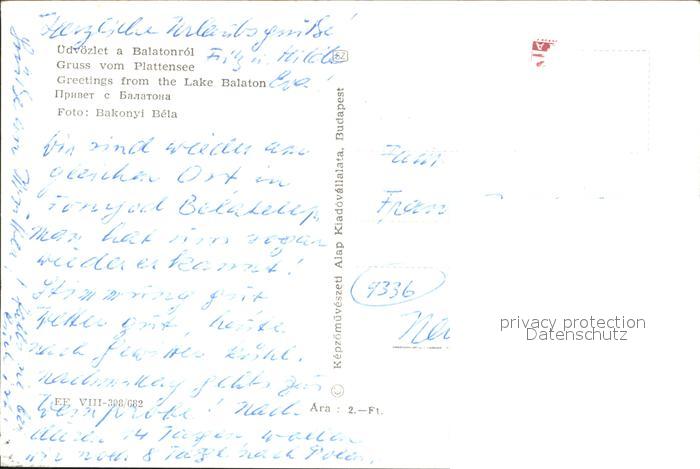 Herzliche Urlaubsgrüße
Fritz u. Hilde
Eva!
Üdvözlet a Balatonról
Gruss vom Plattensee
Greetings from the Lake Balaton
Привет с Балатона
Foto: Bakonyi Béla
Wir sind wieder am
gleichen Ort in
Fonyod Belatelep,
man hat uns sogar
wieder erkannt!
Stimmung gut
Wetter gut, heute
nach Gewitter kühl.
Nachmittag gehts zur
Weinprobe! Nach
14 Tagen wollen
wir noch 8 Tage nach Polen.
EE VIII-308/682
Ára : 2.—Ft.
Képzőművészeti Alap Kiadóvállalata, Budapest
Grüße an
Fam
Fran
9336
privacy protection
Datenschutz